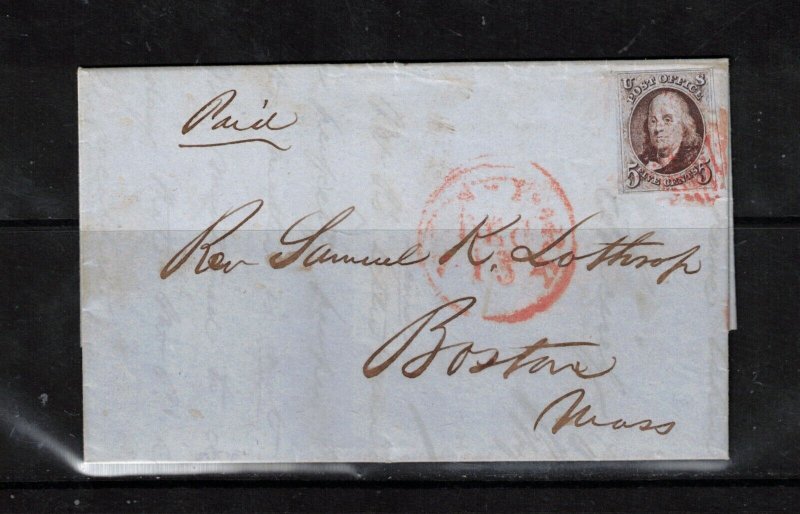 Paid
U S
POST OFFICE
5 FIVE CENTS 5
DEC
13
Rev Samuel K. Lothrop
Boston
Mass